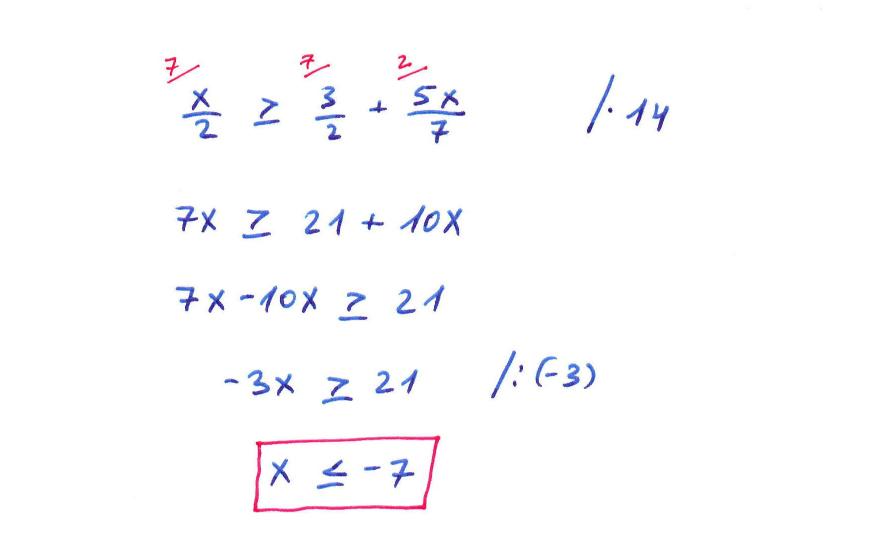 7 7 2
x/2 ≥ 3/2 + 5x/7 /· 14
7x ≥ 21 + 10x
7x - 10x ≥ 21
-3x ≥ 21 /:(-3)
x ≤ -7